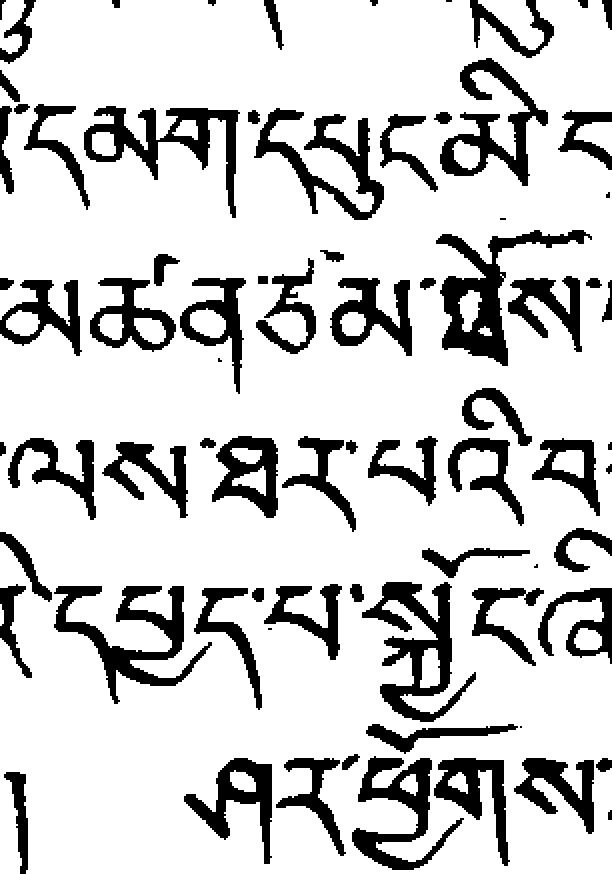 དམག་དཔུང་མི་
མཚན་ཙམ་ཐོས་
ལས་ཐར་པའི་བ
དཔྱད་པ་སྐྱོང་ཞི
། ཤར་ཕྱོགས་